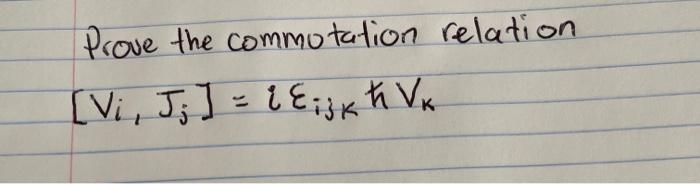 Prove the commutation relation
[Vi, Jj] = i εijk ħ Vk